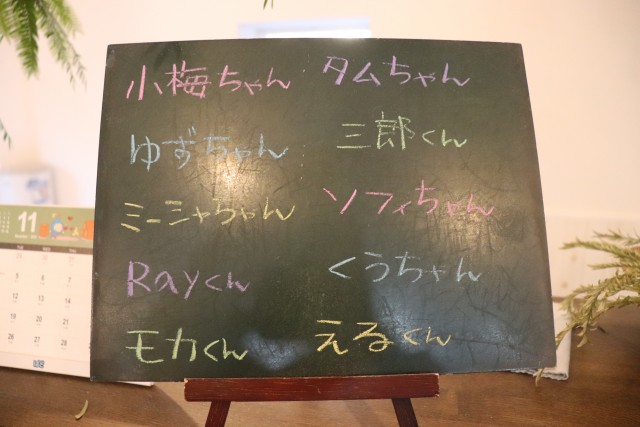 小梅ちゃん
ゆずちゃん
ミーシャちゃん
Rayくん
モカくん
タムちゃん
三郎くん
ソフィちゃん
くうちゃん
えるくん
11